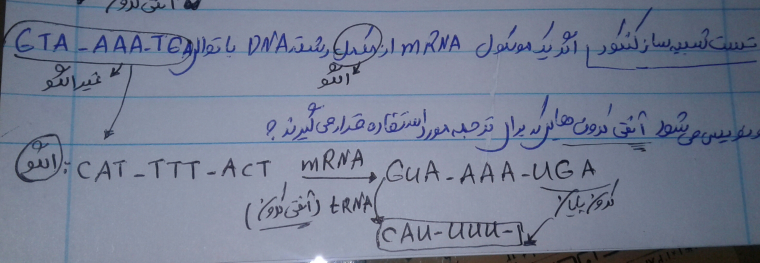 آنتی کدون
تست شبیه ساز کنکور اگر یک مولکول mRNA از مکمل رشته DNA با توالی GTA - AAA - TGA
الگو غیر الگو
رونویسی می شود آنتی کدون هایی که برای ترجمه مورد استفاده قرار می گیرند ؟
الگو : CAT - TTT - ACT mRNA GUA - AAA - UGA
(آنتی کدون) tRNA کدون پایان
CAU - UUU -